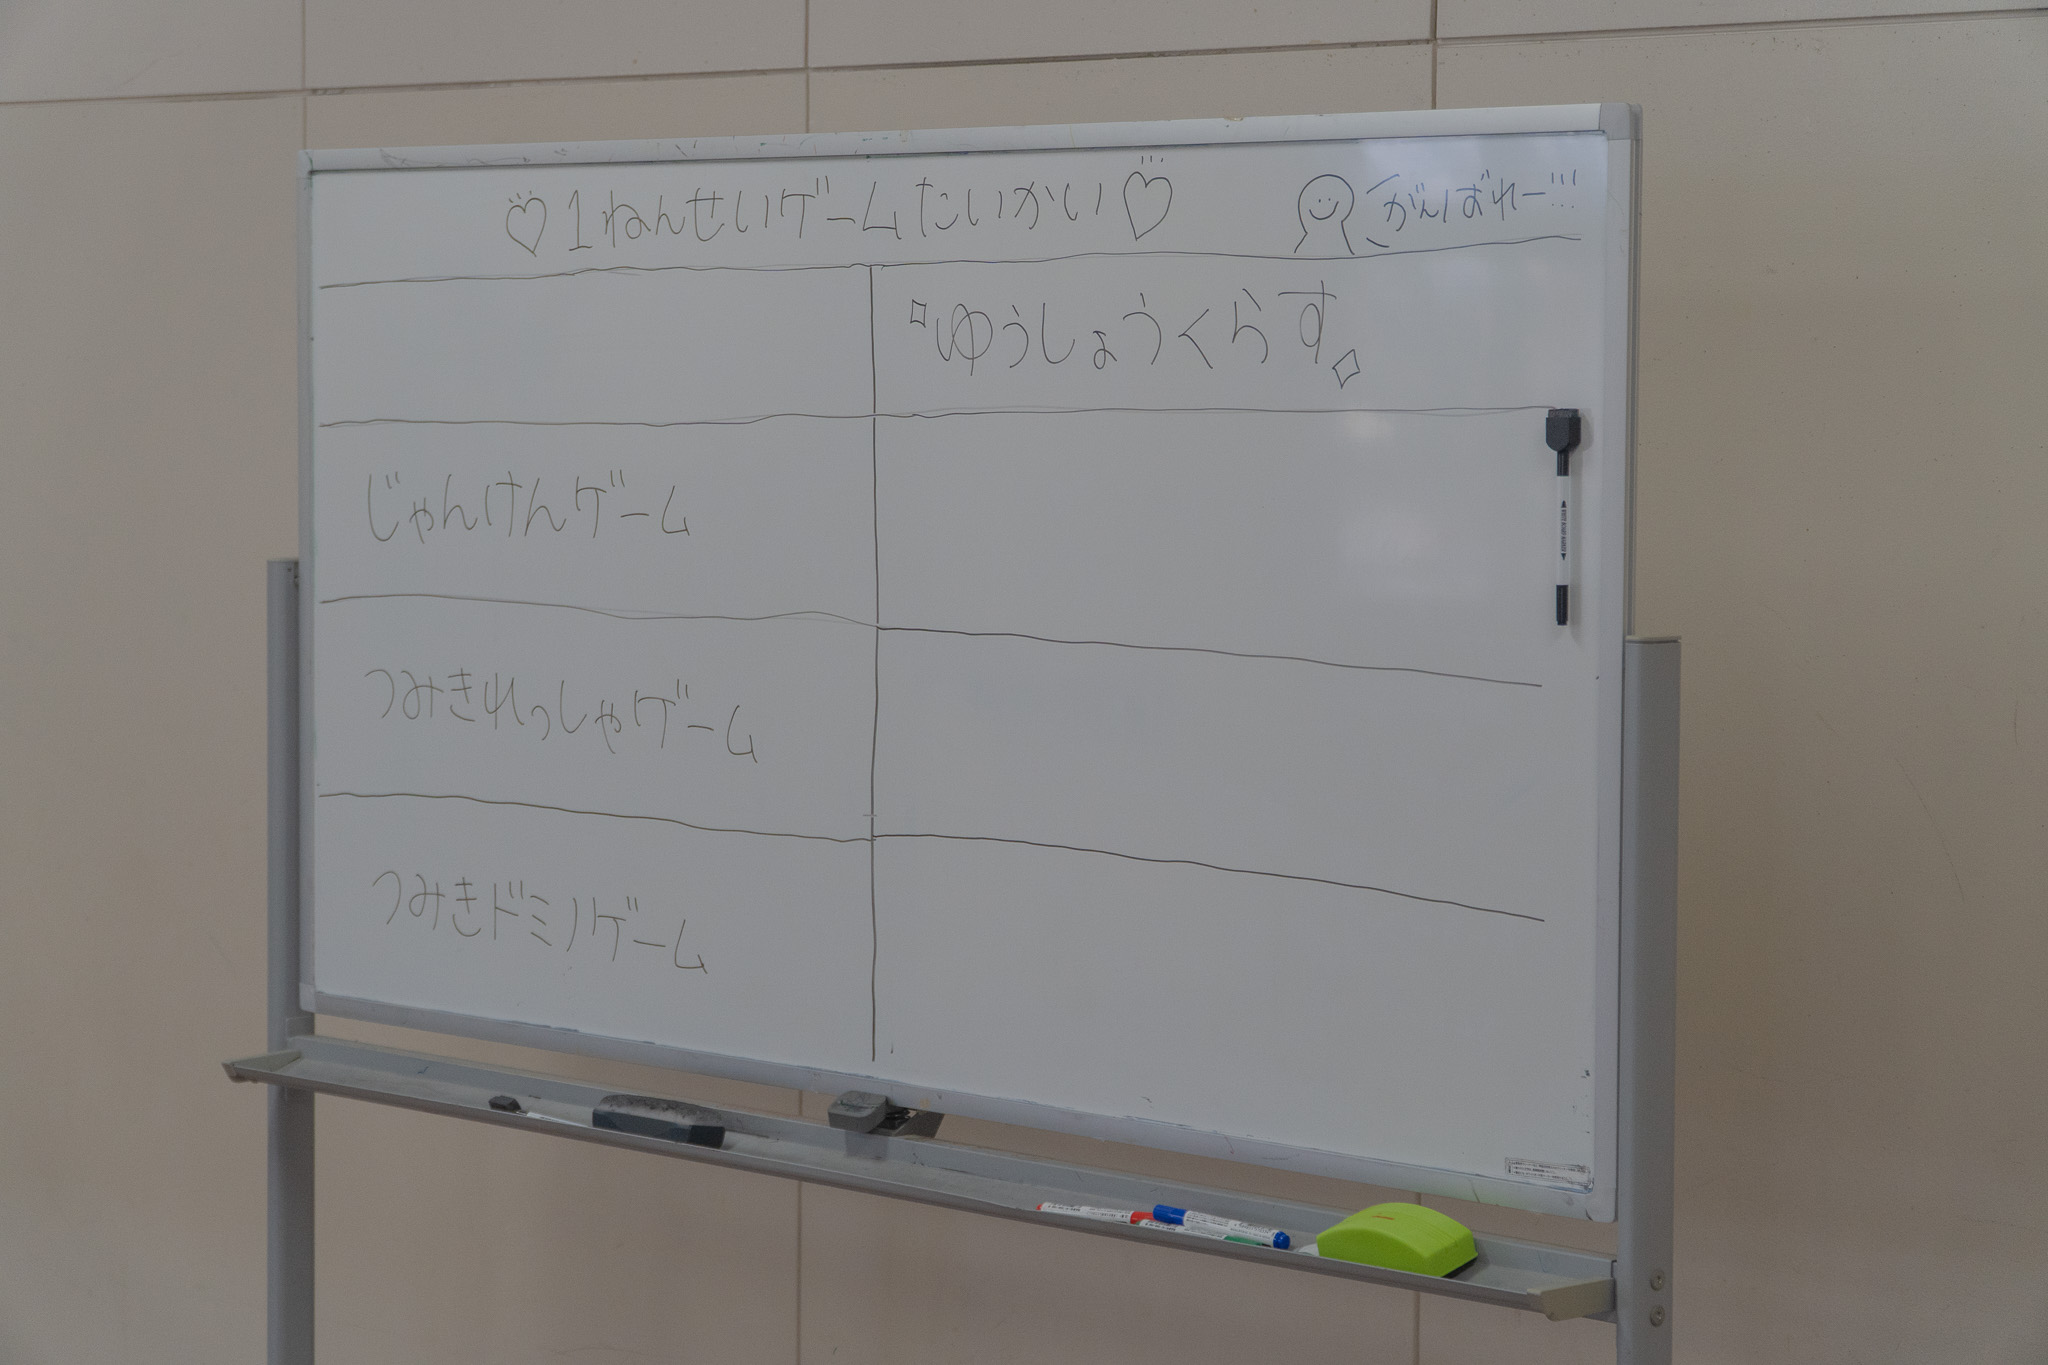 ♡1ねんせいゲームたいかい♡
がんばれー!!!
ゆうしょうくらす
じゃんけんゲーム
つみきれっしゃゲーム
つみきドミノゲーム